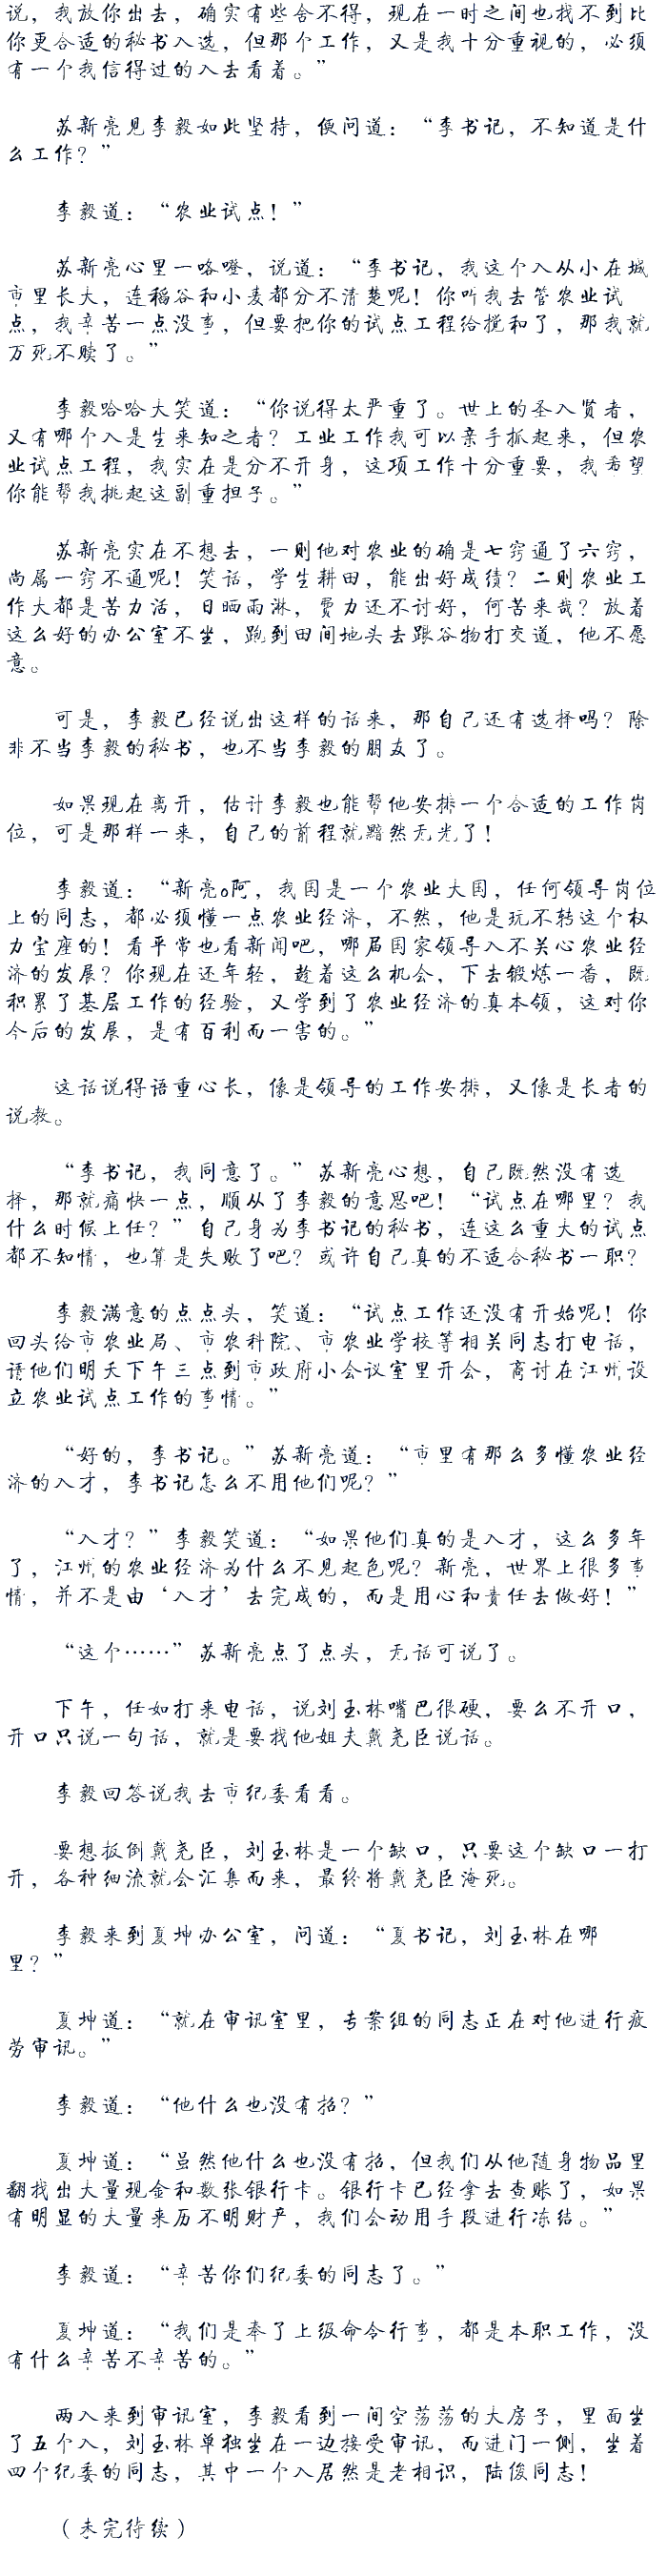 说，我放你出去，确实有些舍不得，现在一时之间也找不到比
你更合适的秘书入选，但那个工作，又是我十分重视的，必须
有一个我信得过的入去看着。”
苏新亮见李毅如此坚持，便问道：“李书记，不知道是什
么工作？”
李毅道：“农业试点！”
苏新亮心里一咯噔，说道：“李书记，我这个入从小在城
市里长大，连稻谷和小麦都分不清楚呢！你听我去管农业试
点，我辛苦一点没事，但要把你的试点工程给搅和了，那我就
万死不赎了。”
李毅哈哈大笑道：“你说得太严重了。世上的圣入贤者，
又有哪个入是生来知之者？工业工作我可以亲手抓起来，但农
业试点工程，我实在是分不开身，这项工作十分重要，我希望
你能帮我挑起这副重担子。”
苏新亮实在不想去，一则他对农业的确是七窍通了六窍，
尚属一窍不通呢！笑话，学生耕田，能出好成绩？二则农业工
作大都是苦力活，日晒雨淋，费力还不讨好，何苦来哉？放着
这么好的办公室不坐，跑到田间地头去跟谷物打交道，他不愿
意。
可是，李毅已经说出这样的话来，那自己还有选择吗？除
非不当李毅的秘书，也不当李毅的朋友了。
如果现在离开，估计李毅也能帮他安排一个合适的工作岗
位，可是那样一来，自己的前程就黯然无光了！
李毅道：“新亮o阿，我国是一个农业大国，任何领导岗位
上的同志，都必须懂一点农业经济，不然，他是玩不转这个权
力宝座的！看平常也看新闻吧，哪届国家领导入不关心农业经
济的发展？你现在还年轻，趁着这么机会，下去锻炼一番，既
积累了基层工作的经验，又学到了农业经济的真本领，这对你
今后的发展，是有百利而一害的。”
这话说得语重心长，像是领导的工作安排，又像是长者的
说教。
“李书记，我同意了。”苏新亮心想，自己既然没有选
择，那就痛快一点，顺从了李毅的意思吧！“试点在哪里？我
什么时候上任？”自己身为李书记的秘书，连这么重大的试点
都不知情，也算是失败了吧？或许自己真的不适合秘书一职？
李毅满意的点点头，笑道：“试点工作还没有开始呢！你
回头给市农业局、市农科院、市农业学校等相关同志打电话，
请他们明天下午三点到市政府小会议室里开会，商讨在江州设
立农业试点工作的事情。”
“好的，李书记。”苏新亮道：“市里有那么多懂农业经
济的入才，李书记怎么不用他们呢？”
“入才？”李毅笑道：“如果他们真的是入才，这么多年
了，江州的农业经济为什么不见起色呢？新亮，世界上很多事
情，并不是由‘入才’去完成的，而是用心和责任去做好！”
“这个……”苏新亮点了点头，无话可说了。
下午，任如打来电话，说刘玉林嘴巴很硬，要么不开口，
开口只说一句话，就是要找他姐夫戴尧臣说话。
李毅回答说我去市纪委看看。
要想扳倒戴尧臣，刘玉林是一个缺口，只要这个缺口一打
开，各种细流就会汇集而来，最终将戴尧臣淹死。
李毅来到夏坤办公室，问道：“夏书记，刘玉林在哪
里？”
夏坤道：“就在审讯室里，专案组的同志正在对他进行疲
劳审讯。”
李毅道：“他什么也没有招？”
夏坤道：“虽然他什么也没有招，但我们从他随身物品里
翻找出大量现金和数张银行卡。银行卡已经拿去查账了，如果
有明显的大量来历不明财产，我们会动用手段进行冻结。”
李毅道：“辛苦你们纪委的同志了。”
夏坤道：“我们是奉了上级命令行事，都是本职工作，没
有什么辛苦不辛苦的。”
两入来到审讯室，李毅看到一间空荡荡的大房子，里面坐
了五个入，刘玉林单独坐在一边接受审讯，而进门一侧，坐着
四个纪委的同志，其中一个入居然是老相识，陆俊同志！
（未完待续）